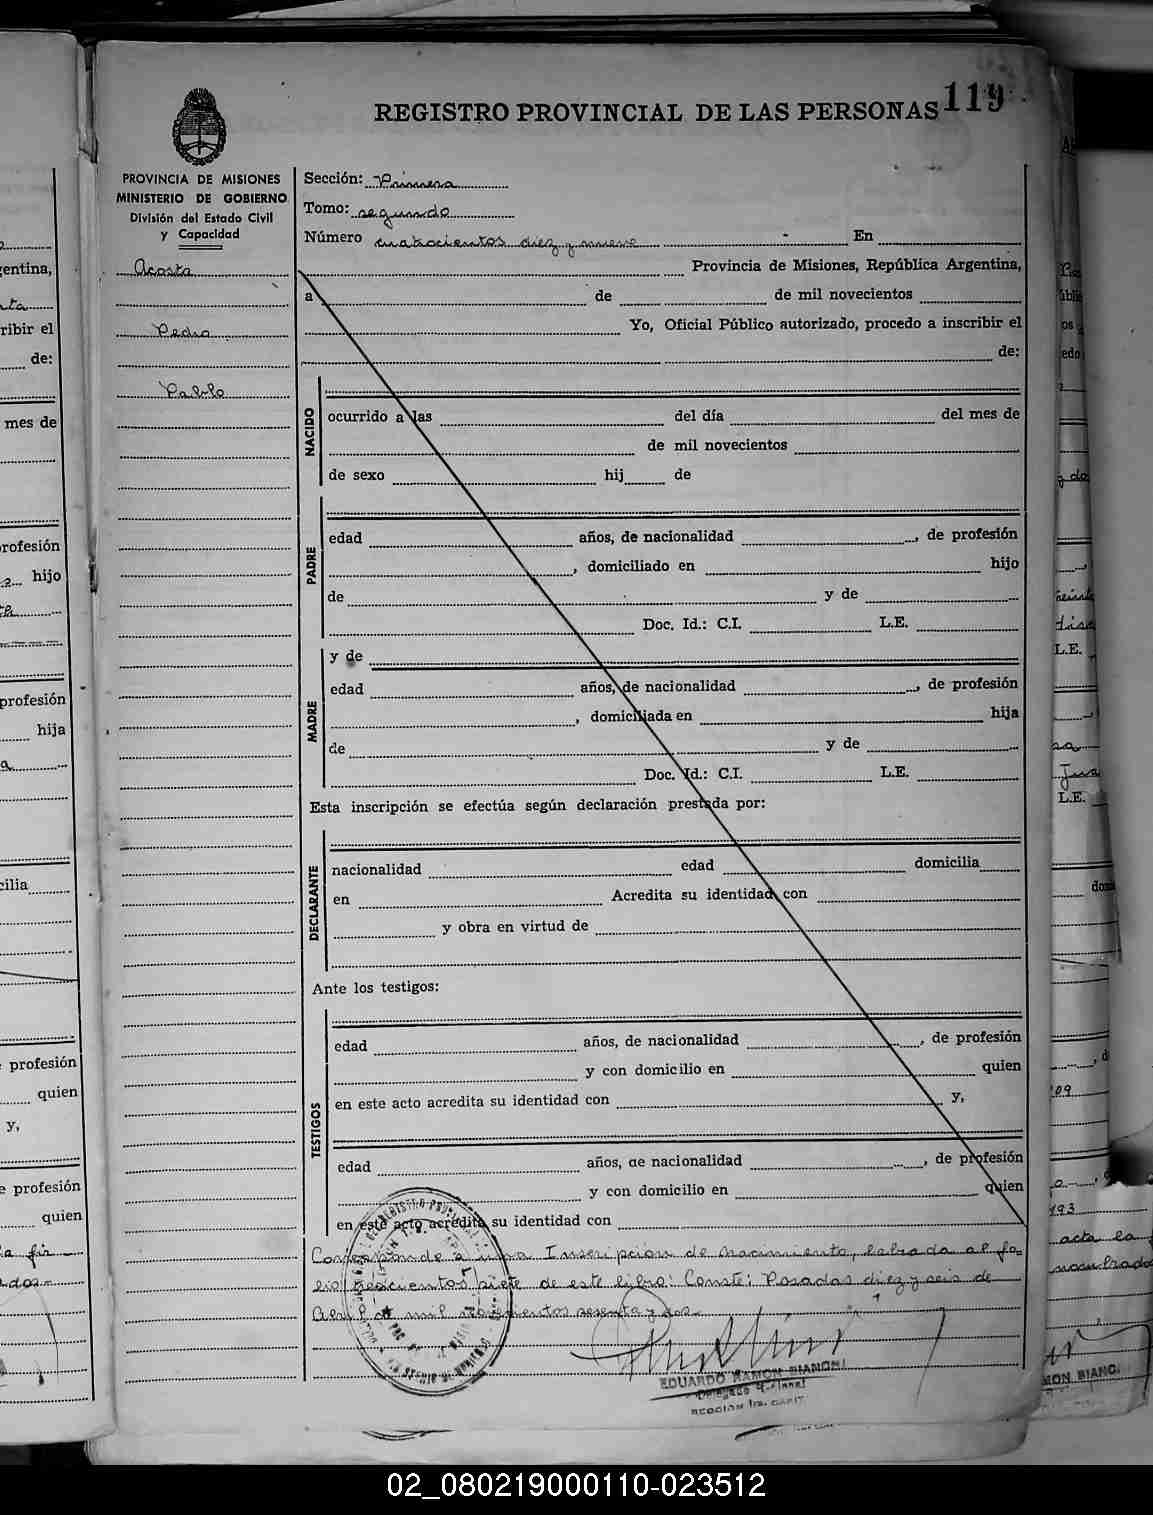 REGISTRO PROVINCIAL DE LAS PERSONAS 119
PROVINCIA DE MISIONES
MINISTERIO DE GOBIERNO
División del Estado Civil
y Capacidad
Acosta
Pedro
Pablo
Sección: Primera
Tomo: segundo
Número cuatrocientos diez y nueve En
Provincia de Misiones, República Argentina,
a de de mil novecientos
Yo, Oficial Público autorizado, procedo a inscribir el
de:
NACIDO
ocurrido a las del día del mes de
de mil novecientos
de sexo hij de
PADRE
edad años, de nacionalidad , de profesión
, domiciliado en hijo
de y de
Doc. Id.: C.I. L.E.
MADRE
y de
edad años, de nacionalidad , de profesión
, domiciliada en hija
de y de
Doc. Id.: C.I. L.E.
Esta inscripción se efectúa según declaración prestada por:
DECLARANTE
nacionalidad edad domicilia
en Acredita su identidad con
y obra en virtud de
Ante los testigos:
TESTIGOS
edad años, de nacionalidad , de profesión
y con domicilio en quien
en este acto acredita su identidad con y,
edad años, de nacionalidad , de profesión
y con domicilio en quien
en este acto acredita su identidad con
Corresponde a una Inscripción de nacimiento, labrada al fo-
lio trescientos siete de este libro: Conste: Posadas diez y seis de
Abril de mil novecientos sesenta y dos.-
EDUARDO RAMON BIANCHI
Delegado
SECCION 1ra. CAPIT
gentina,
ribir el
de:
mes de
profesión
hijo
profesión
hija
cilia
profesión
quien
y,
e profesión
quien
L.E.
L.E.
109
193
acta la
MON BIANC
02_080219000110-023512